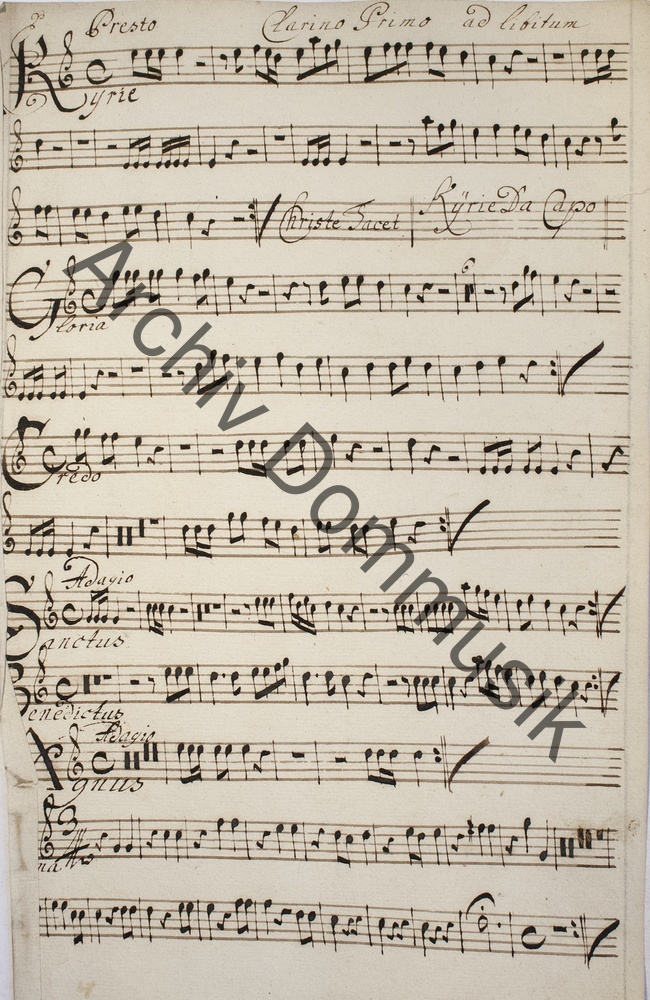 Presto Clarino Primo ad libitum
Kyrie
Christe Tacet Kÿrie Da Capo
6
Gloria
Credo
Adagio
Sanctus
Benedictus
Adagio
Agnus
3
na
Archiv Dommusik